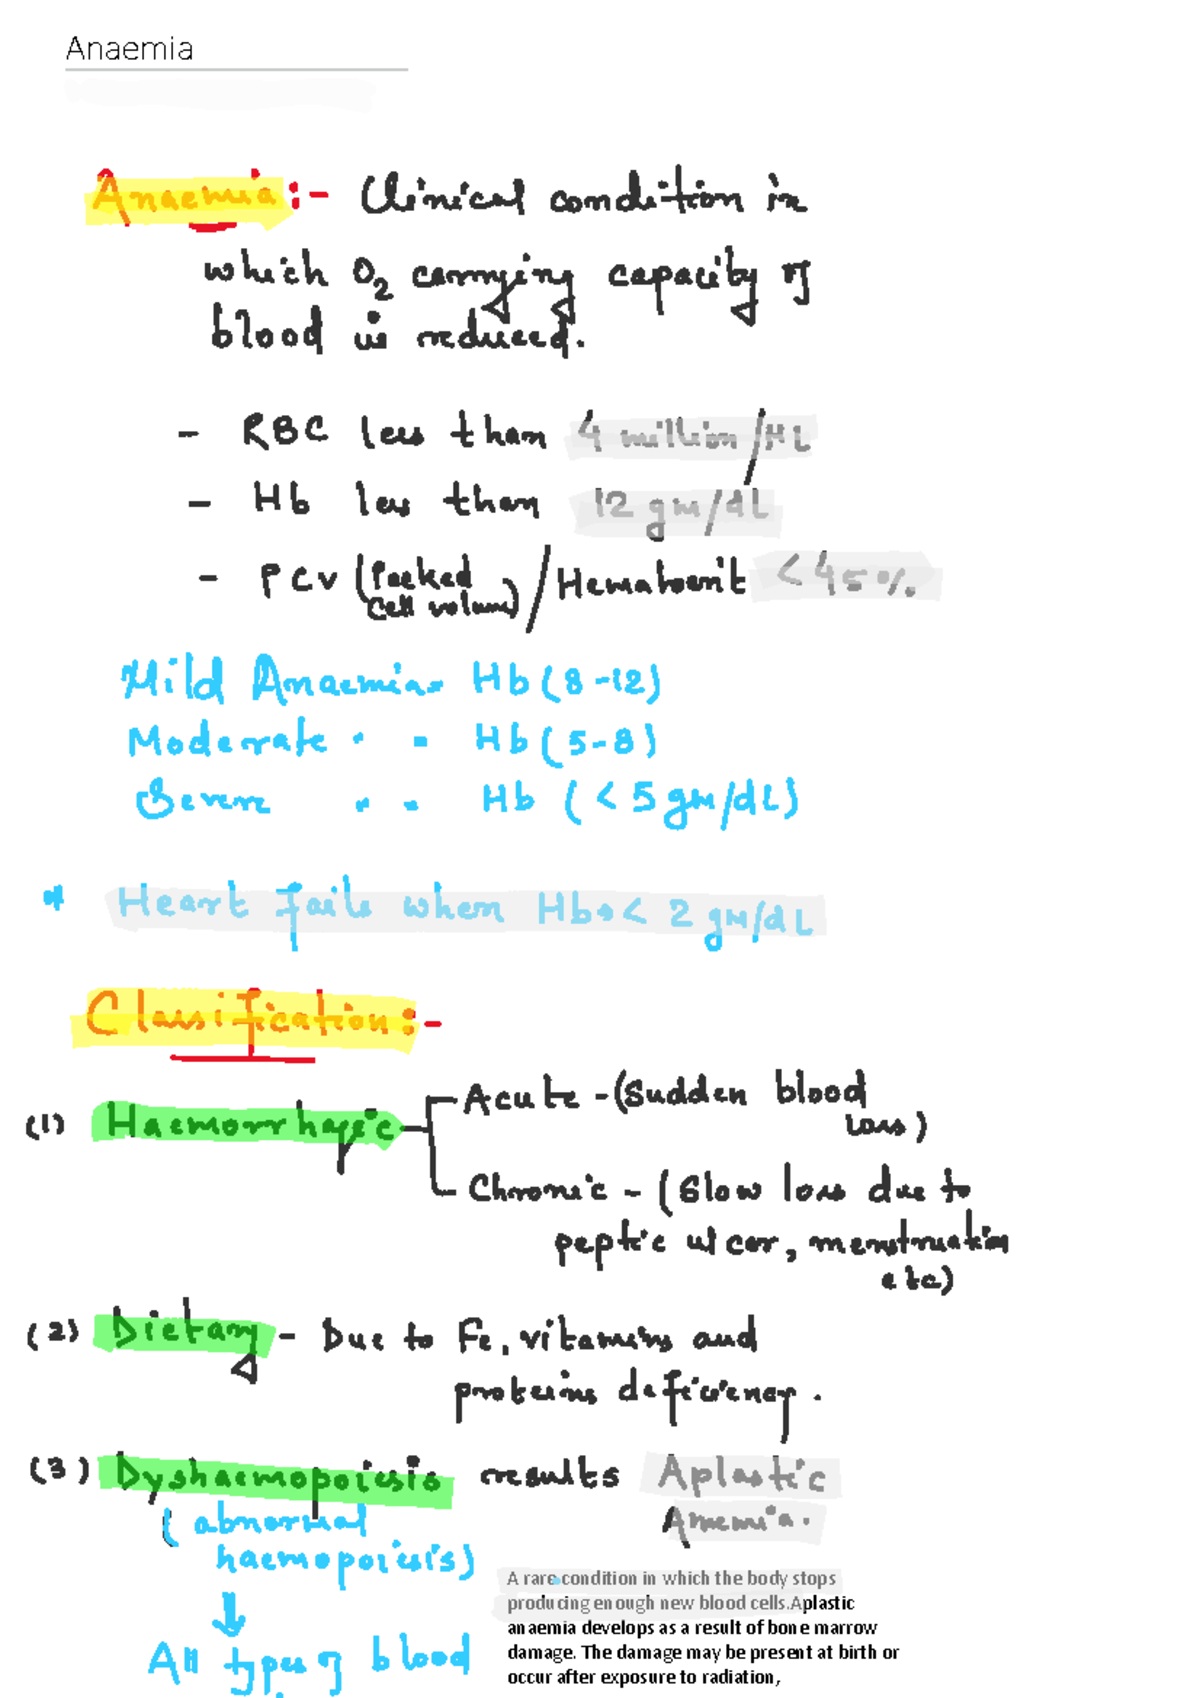 Anaemia
Anaemia :- Clinical condition in
which O₂ carrying capacity of
blood is reduced.
- RBC less than 4 million/μL
- Hb less than 12 gm/dL
- PCV (Packed cell volume) / Hematocrit <45%
Mild Anaemia = Hb (8-12)
Moderate " = Hb (5-8)
Severe " = Hb (<5 gm/dL)
* Heart fails when Hb → < 2 gm/dL
Classification :-
(1) Haemorrhagic
Acute - (Sudden blood
loss)
Chronic - (Slow loss due to
peptic ulcer, menstruation
etc)
(2) Dietary - Due to Fe, vitamins and
proteins deficiency.
(3) Dyshaemopoiesis results Aplastic
Anemia.
(abnormal
haemopoiesis)
↓
All types of blood
A rare condition in which the body stops
producing enough new blood cells.Aplastic
anaemia develops as a result of bone marrow
damage. The damage may be present at birth or
occur after exposure to radiation,